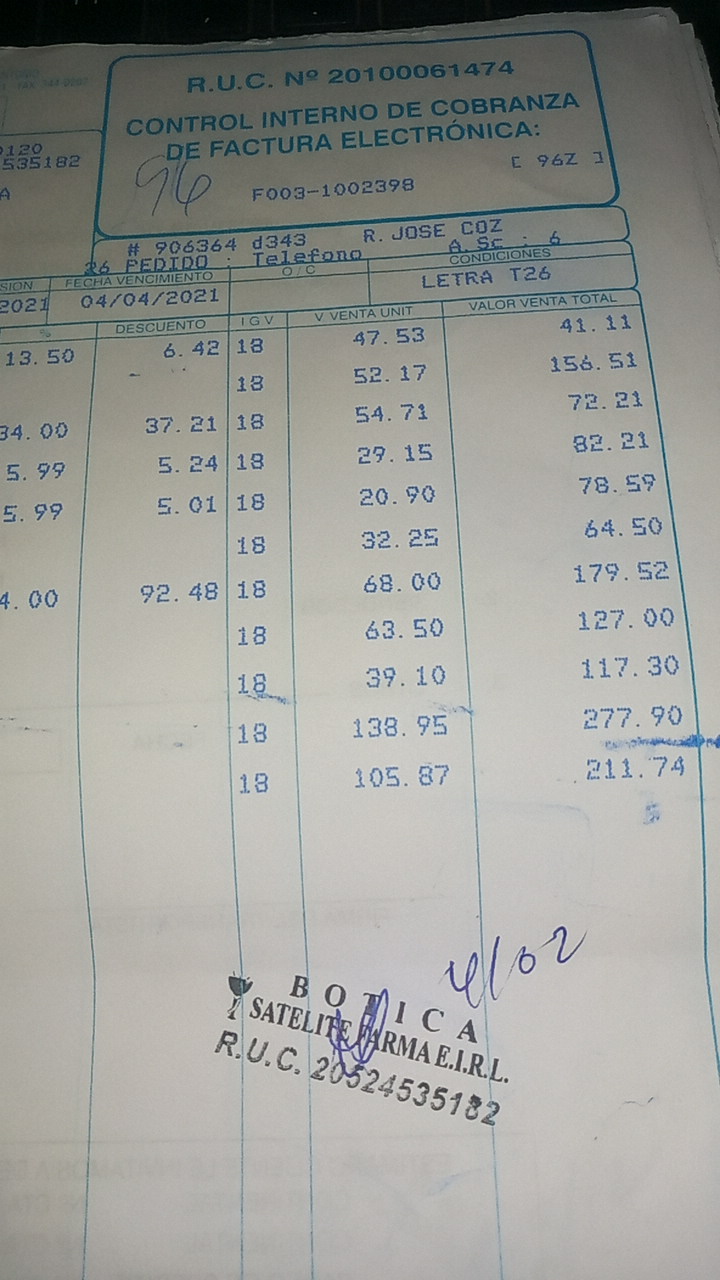 R.U.C. Nº 20100061474
CONTROL INTERNO DE COBRANZA
DE FACTURA ELECTRÓNICA:
[ 96Z ]
96
F003-1002398
0120
535182
A
# 906364 d343 R. JOSE COZ
26 PEDIDO : Telefono A. Sc : 6
SION FECHA VENCIMIENTO O / C CONDICIONES
2021 04/04/2021 LETRA T26
% DESCUENTO I G V V VENTA UNIT VALOR VENTA TOTAL
13.50 6.42 18 47.53 41.11
18 52.17 156.51
34.00 37.21 18 54.71 72.21
5.99 5.24 18 29.15 82.21
5.99 5.01 18 20.90 78.59
18 32.25 64.50
4.00 92.48 18 68.00 179.52
18 63.50 127.00
18 39.10 117.30
18 138.95 277.90
18 105.87 211.74
4/02
BOTICA
SATELITE FARMA E.I.R.L.
R.U.C. 20524535182